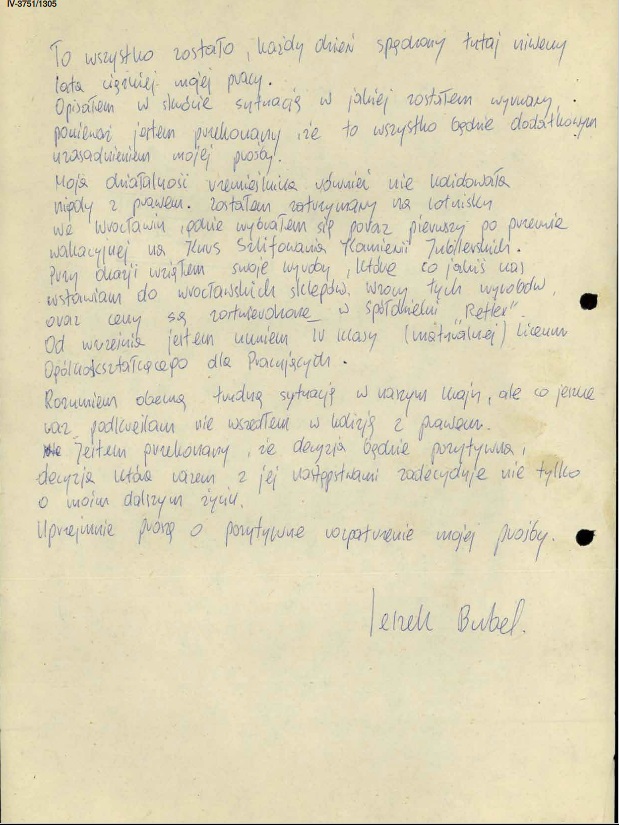 IV-3751/1305
To wszystko zostało, każdy dzień spędzony tutaj niweczy
lata ciężkiej mojej pracy.
Opisałem w skrócie sytuację w jakiej zostałem
ponieważ jestem przekonany, że to wszystko będzie dodatkowym
uzasadnieniem mojej prośby.
Moja działalność rzemieślnicza również nie kolidowała
nigdy z prawem. Zostałem zatrzymany na lotnisku
we Wrocławiu, gdzie wybrałem się poraz pierwszy po przerwie
wakacyjnej na Kurs Szlifowania Kamienii Jubilerskich.
Przy okazji wziąłem swoje wyroby, które co jakiś czas
wstawiam do wrocławskich sklepów. Wzory tych wyrobów,
oraz ceny są zatwierdzone w spółdzielni "Reflex".
Od września jestem uczniem IV klasy (maturalnej) Liceum
Ogólnokształcącego dla Pracujących.
Rozumiem obecną trudną sytuację w naszym kraju, ale co jeszcze
raz podkreślam nie wszedłem w kolizję z prawem.
Jestem przekonany, że decyzja będzie pozytywna,
decyzja która razem z jej następstwami zadecyduje nie tylko
o moim dalszym życiu.
Uprzejmie proszę o pozytywne rozpatrzenie mojej prośby.
Leszek Bubel.